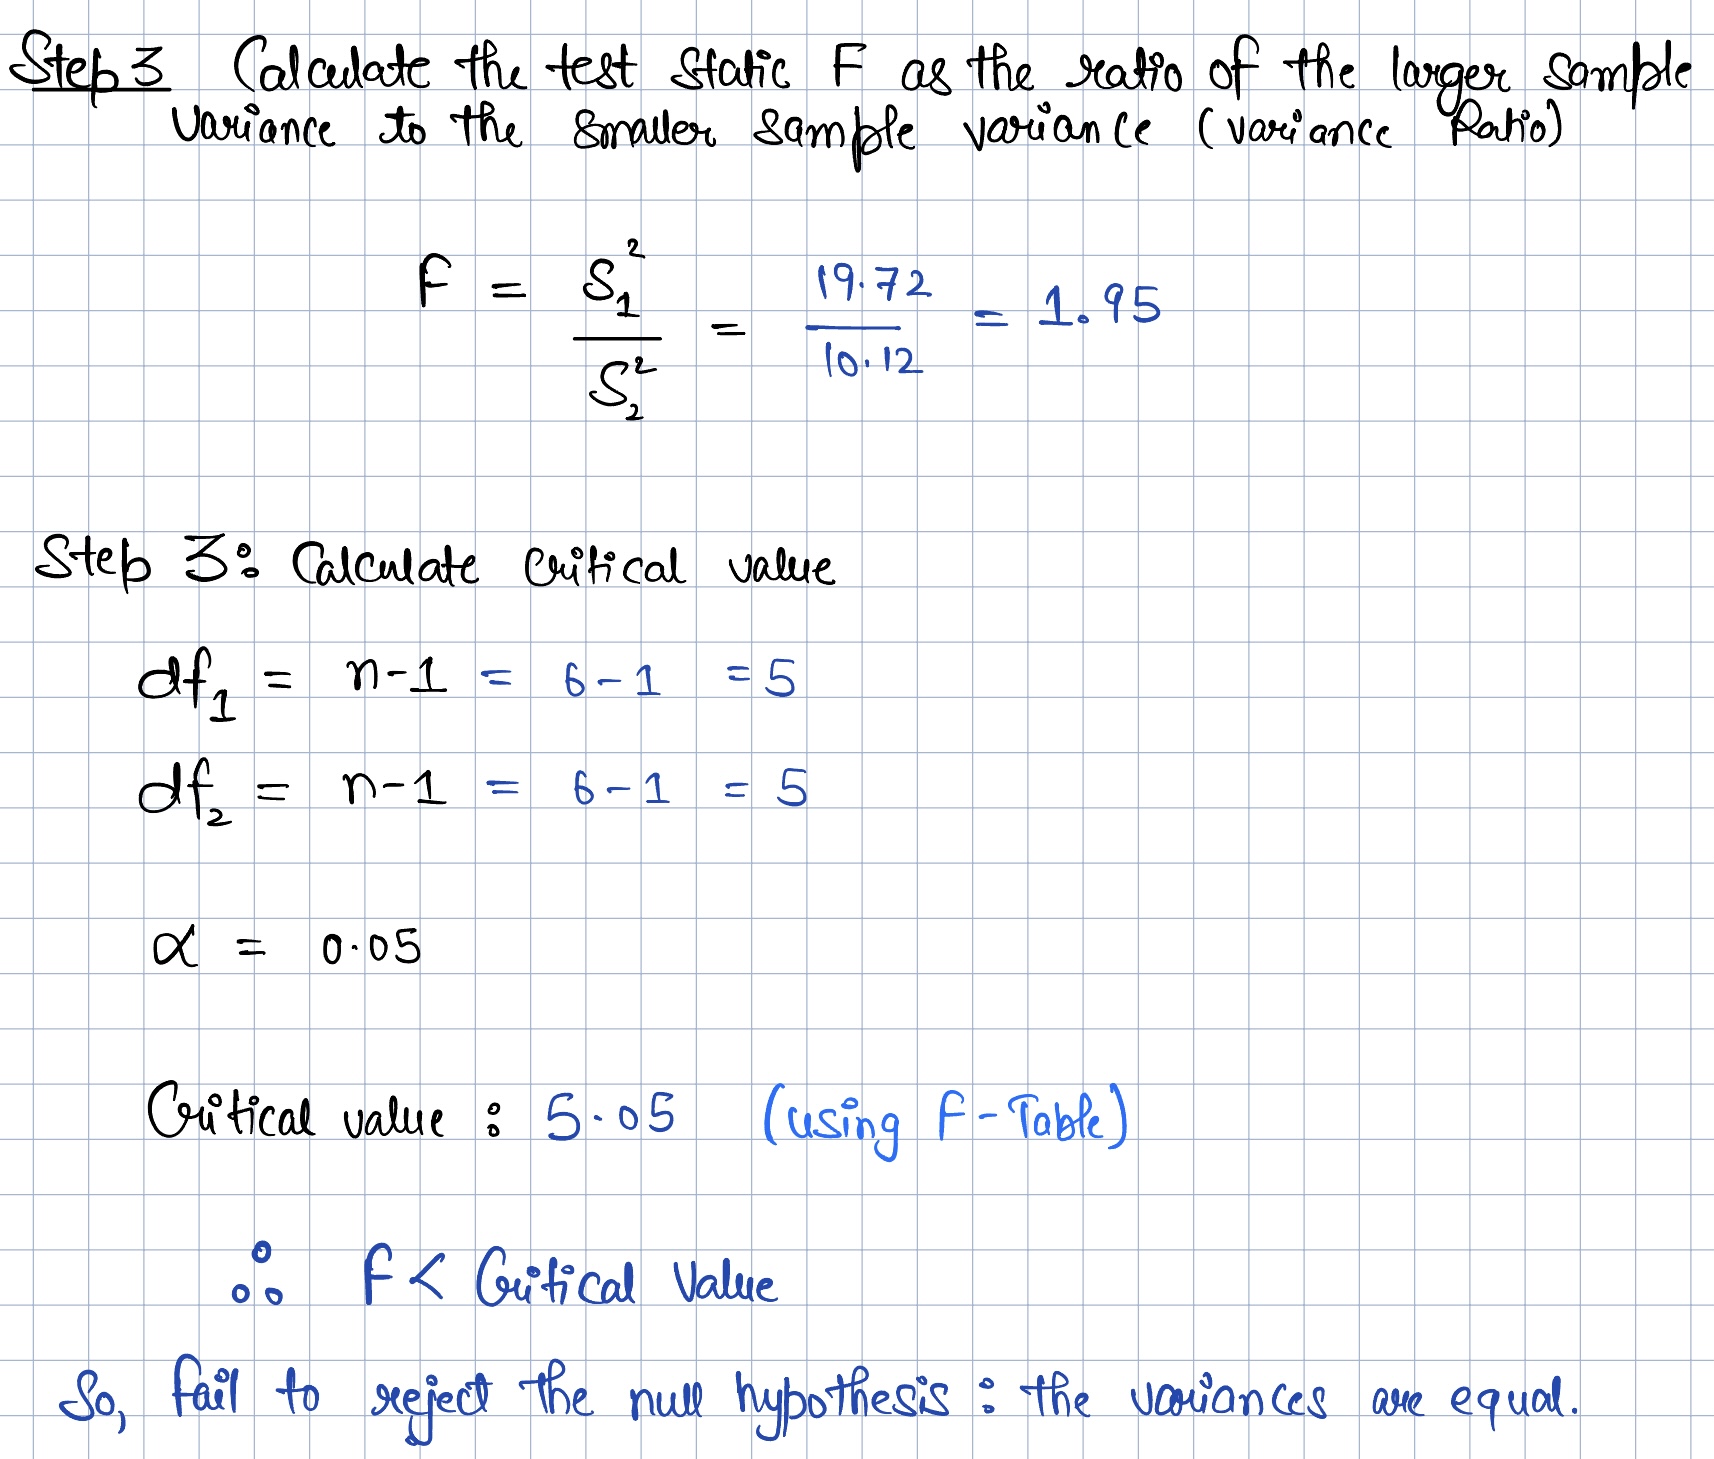 Step 3 Calculate the test Static F as the ratio of the larger Sample
Variance to the Smaller Sample variance (variance Ratio)
F = S₁² / S₂² = 19.72 / 10.12 = 1.95
Step 3: Calculate Critical value
df₁ = n-1 = 6-1 = 5
df₂ = n-1 = 6-1 = 5
α = 0.05
Critical value : 5.05 (using F-Table)
∴ F < Critical Value
So, fail to reject the null hypothesis : the variances are equal.